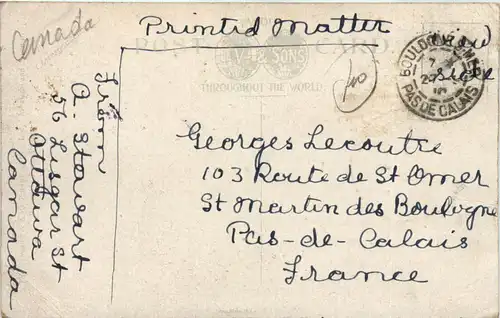 Canada
Printed Matter
POST CARD
& SONS
THROUGHOUT THE WORLD
View
side
BOULOGNE
PAS DE CALAIS
From
A. Stewart
56 Lisgar St
Ottawa
Canada
Georges Lecoutre
103 Route de St Omer
St Martin des Boulogne
Pas-de-Calais
France